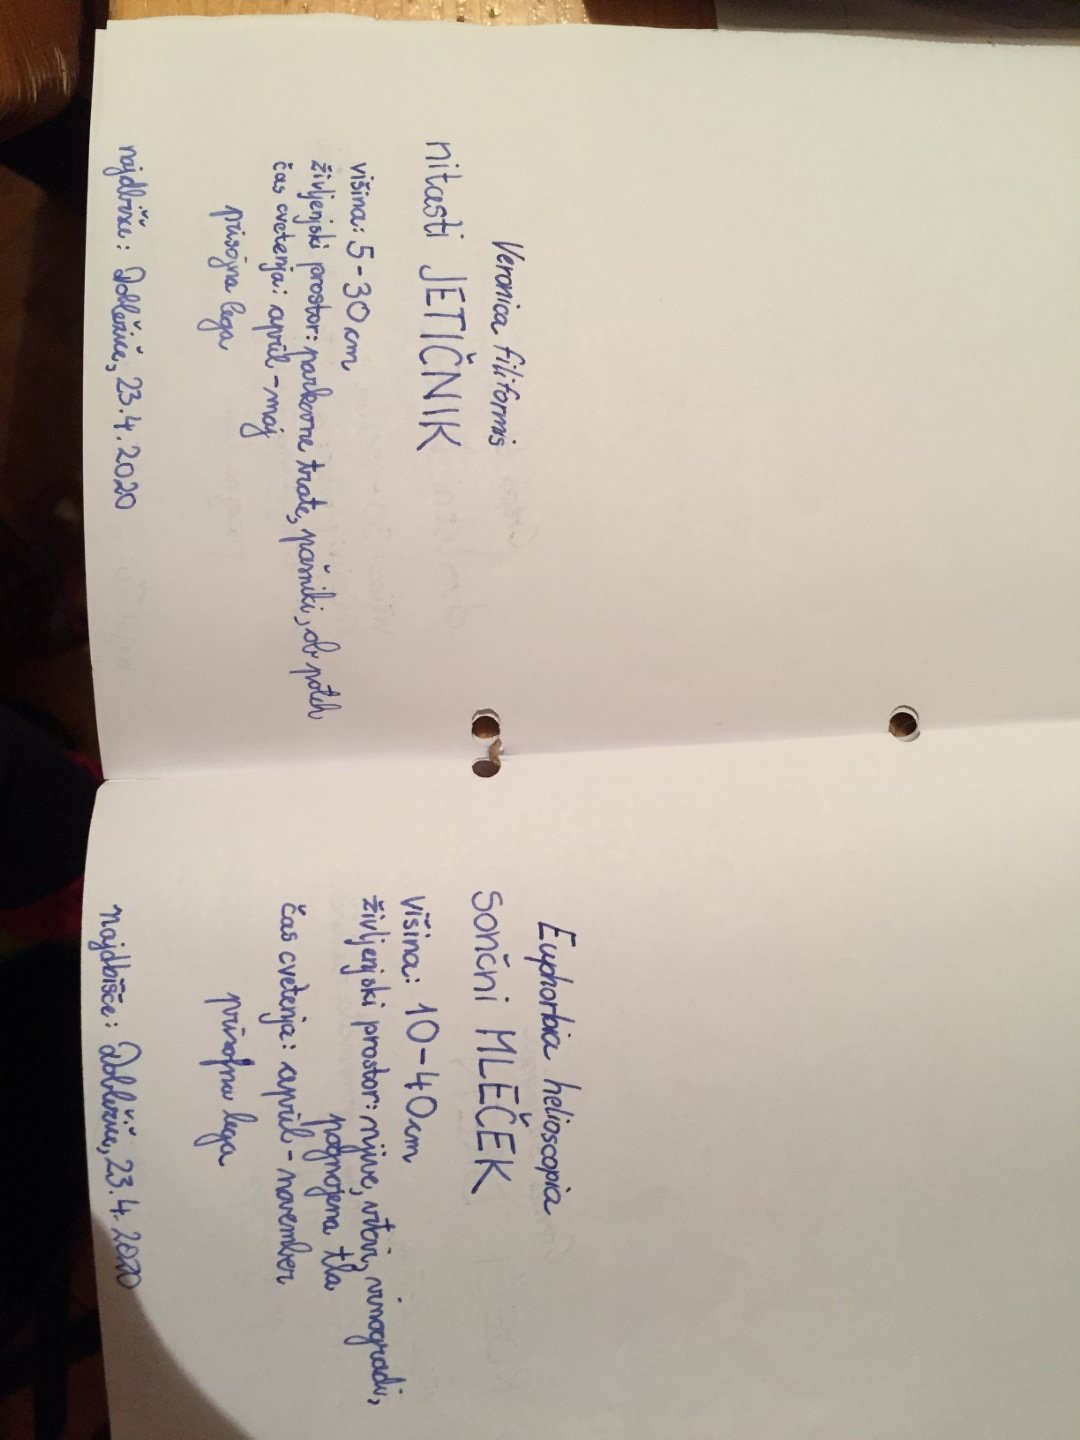 Veronica filiformis
nitasti JETIČNIK
višina: 5-30 cm
življenjski prostor: parkovne trate, pašniki, ob poteh
čas cvetenja: april - maj
prisojna lega
najdbišče: Dobležiče, 23.4.2020
Euphorbia helioscopia
sončni MLEČEK
višina: 10-40cm
življenjski prostor: njive, vrtovi, vinogradi,
pognojena tla
čas cvetenja: april - november
prisojna lega
najdbišče: Dobležiče, 23.4.2020